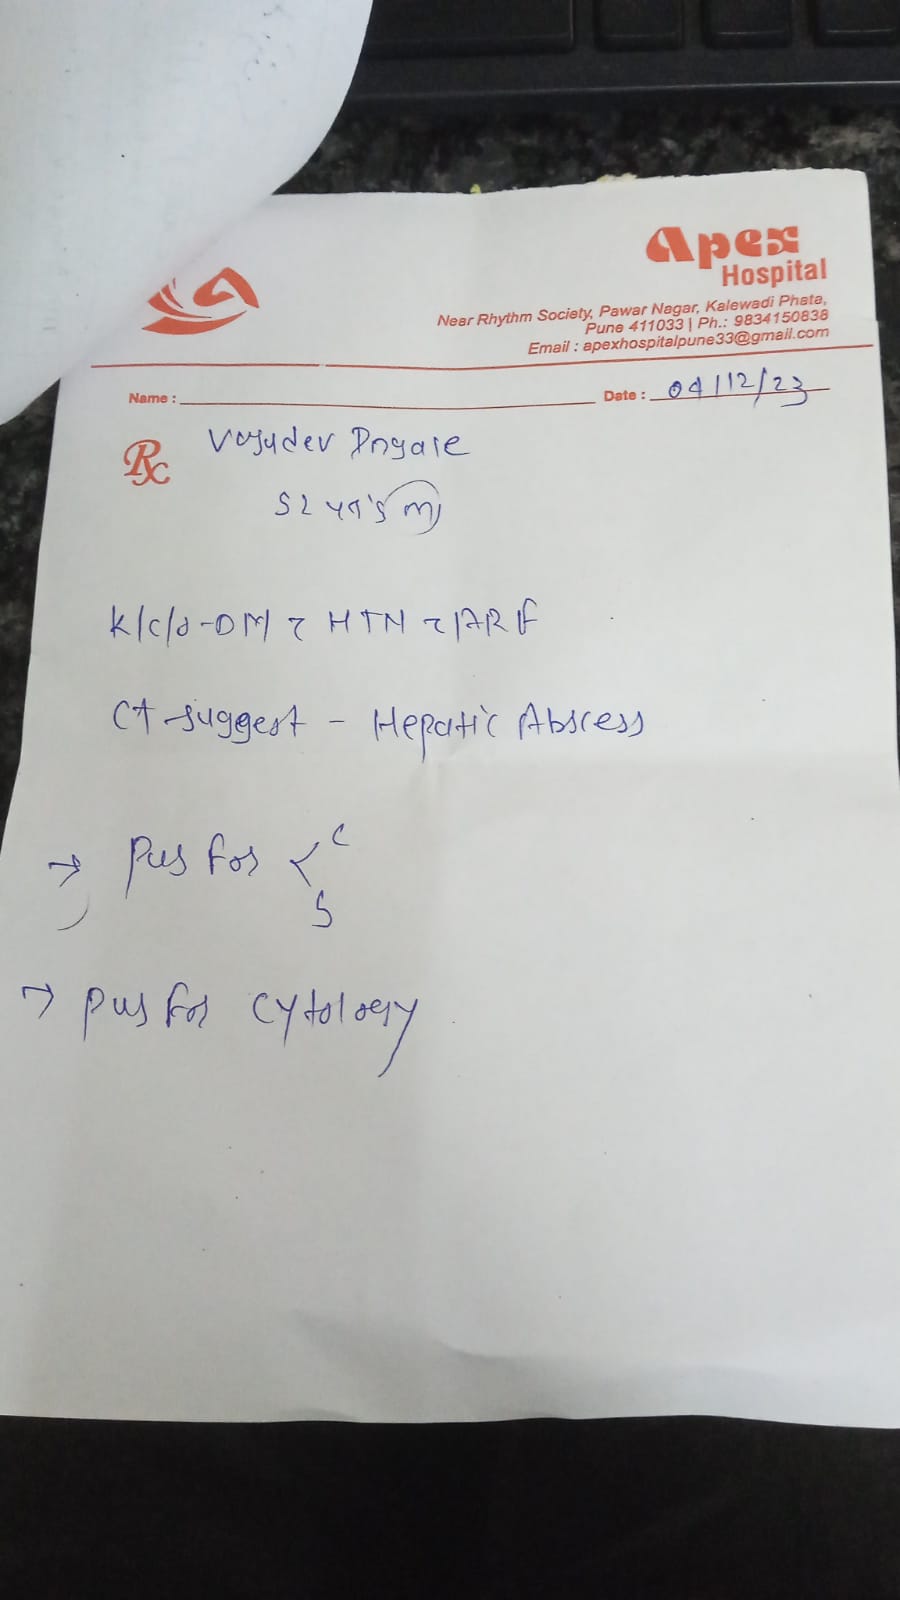 Apex
Hospital
Near Rhythm Society, Pawar Nagar, Kalewadi Phata,
Pune 411033 | Ph.: 9834150838
Email : apexhospitalpune33@gmail.com
Name : Date : 04/12/23
Rx Vasudev Ingale
52 yr's m
K/c/o - DM c HTN c ARF
CT suggest - Hepatic Abscess
→ Pus for < C
S
→ pus for cytology